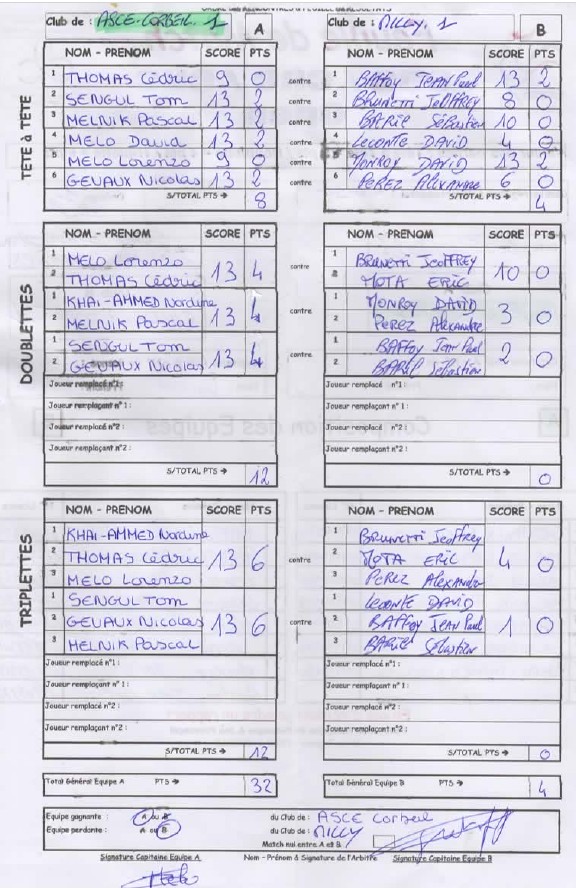 ORDRE DES RENCONTRES & FEUILLE DE RESULTATS
Club de : ASCE. CORBEIL. 1 A Club de : MILLY. 1 B
NOM - PRENOM SCORE PTS NOM - PRENOM SCORE PTS
TETE à TETE
1 THOMAS Cédric 9 0 contre 1 BAFFOY JEAN Paul 13 2
2 SENGUL Tom 13 2 contre 2 BRUNETTI JEOFFREY 8 0
3 MELNIK Pascal 13 2 contre 3 BARIE Sébastien 10 0
4 MELO David 13 2 contre 4 LECONTE DAVID 4 0
5 MELO Lorenzo 9 0 contre 5 MONROY DAVID 13 2
6 GEVAUX Nicolas 13 2 contre 6 PEREZ Alexandre 6 0
S/TOTAL PTS → 8 S/TOTAL PTS → 4
DOUBLETTES
NOM - PRENOM SCORE PTS NOM - PRENOM SCORE PTS
1 MELO Lorenzo 13 4 contre 1 BRUNETTI Jeoffrey 10 0
2 THOMAS Cédric 2 MOTA ERIC
1 KHAI-AHMED Nordine 13 4 contre 1 MONROY DAVID 3 0
2 MELNIK Pascal 2 PEREZ Alexandre
1 SENGUL Tom 13 4 contre 1 BAFFOY Jean Paul 2 0
2 GEVAUX Nicolas 2 BARIE Sébastien
Joueur remplacé n°1: Joueur remplacé n°1 :
Joueur remplaçant n° 1 : Joueur remplaçant n° 1 :
Joueur remplacé n°2 : Joueur remplacé n°2 :
Joueur remplaçant n°2 : Joueur remplaçant n°2 :
S/TOTAL PTS → 12 S/TOTAL PTS → 0
TRIPLETTES
NOM - PRENOM SCORE PTS NOM - PRENOM SCORE PTS
1 KHAI-AMMED Nordine 1 BRUNETTI Jeoffrey
2 THOMAS Cédric 13 6 contre 2 MOTA ERIC 4 0
3 MELO Lorenzo 3 PEREZ Alexandre
1 SENGUL Tom 1 LECONTE DAVID
2 GEVAUX Nicolas 13 6 contre 2 BAFFOY JEAN Paul 1 0
3 MELNIK Pascal 3 BARIE Sébastien
Joueur remplacé n°1 : Joueur remplacé n°1 :
Joueur remplaçant n° 1 : Joueur remplaçant n° 1 :
Joueur remplacé n°2 : Joueur remplacé n°2 :
Joueur remplaçant n°2 : Joueur remplaçant n°2 :
S/TOTAL PTS → 12 S/TOTAL PTS → 0
Total Général Equipe A PTS → 32 Total Général Equipe B PTS → 4
Equipe gagnante : A ou B du Club de : ASCE Corbeil
Equipe perdante : A ou B du Club de : MILLY
Match nul entre A et B
Signature Capitaine Equipe A Nom - Prénom & Signature de l'Arbitre Signature Capitaine Equipe B